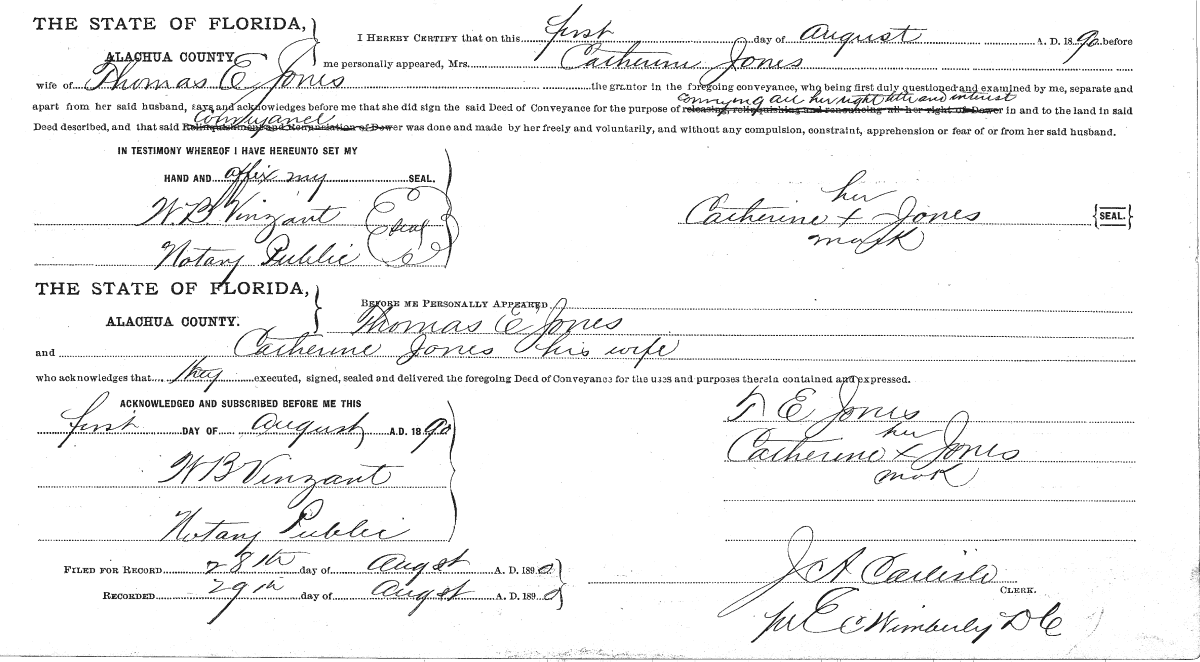 THE STATE OF FLORIDA, I HEREBY CERTIFY that on this first day of August A. D. 1890 before
ALACHUA COUNTY. me personally appeared, Mrs. Catherine Jones
wife of Thomas E Jones the grantor in the foregoing conveyance, who being first duly questioned and examined by me, separate and
conveying all her right title and interest
apart from her said husband, says and acknowledges before me that she did sign the said Deed of Conveyance for the purpose of releasing, relinquishing and renouncing all her right of Dower in and to the land in said
Conveyance
Deed described, and that said Relinquishment and Renunciation of Dower was done and made by her freely and voluntarily, and without any compulsion, constraint, apprehension or fear of or from her said husband.
IN TESTIMONY WHEREOF I HAVE HEREUNTO SET MY
HAND AND affix my SEAL.
W. B. Vinzant Seal
Notary Public
her
Catherine x Jones {SEAL.}
mark
THE STATE OF FLORIDA, BEFORE ME PERSONALLY APPEARED
ALACHUA COUNTY. Thomas E Jones
and Catherine Jones his wife
who acknowledges that they executed, signed, sealed and delivered the foregoing Deed of Conveyance for the uses and purposes therein contained and expressed.
ACKNOWLEDGED AND SUBSCRIBED BEFORE ME THIS
first DAY OF August A.D. 1890
W B Vinzant
Notary Public
T E Jones
her
Catherine x Jones
mark
FILED FOR RECORD 28th day of Augst A. D. 1890
RECORDED 29th day of Augst A. D. 1890
J A Carlisle
CLERK.
pr E C Wimberly D C